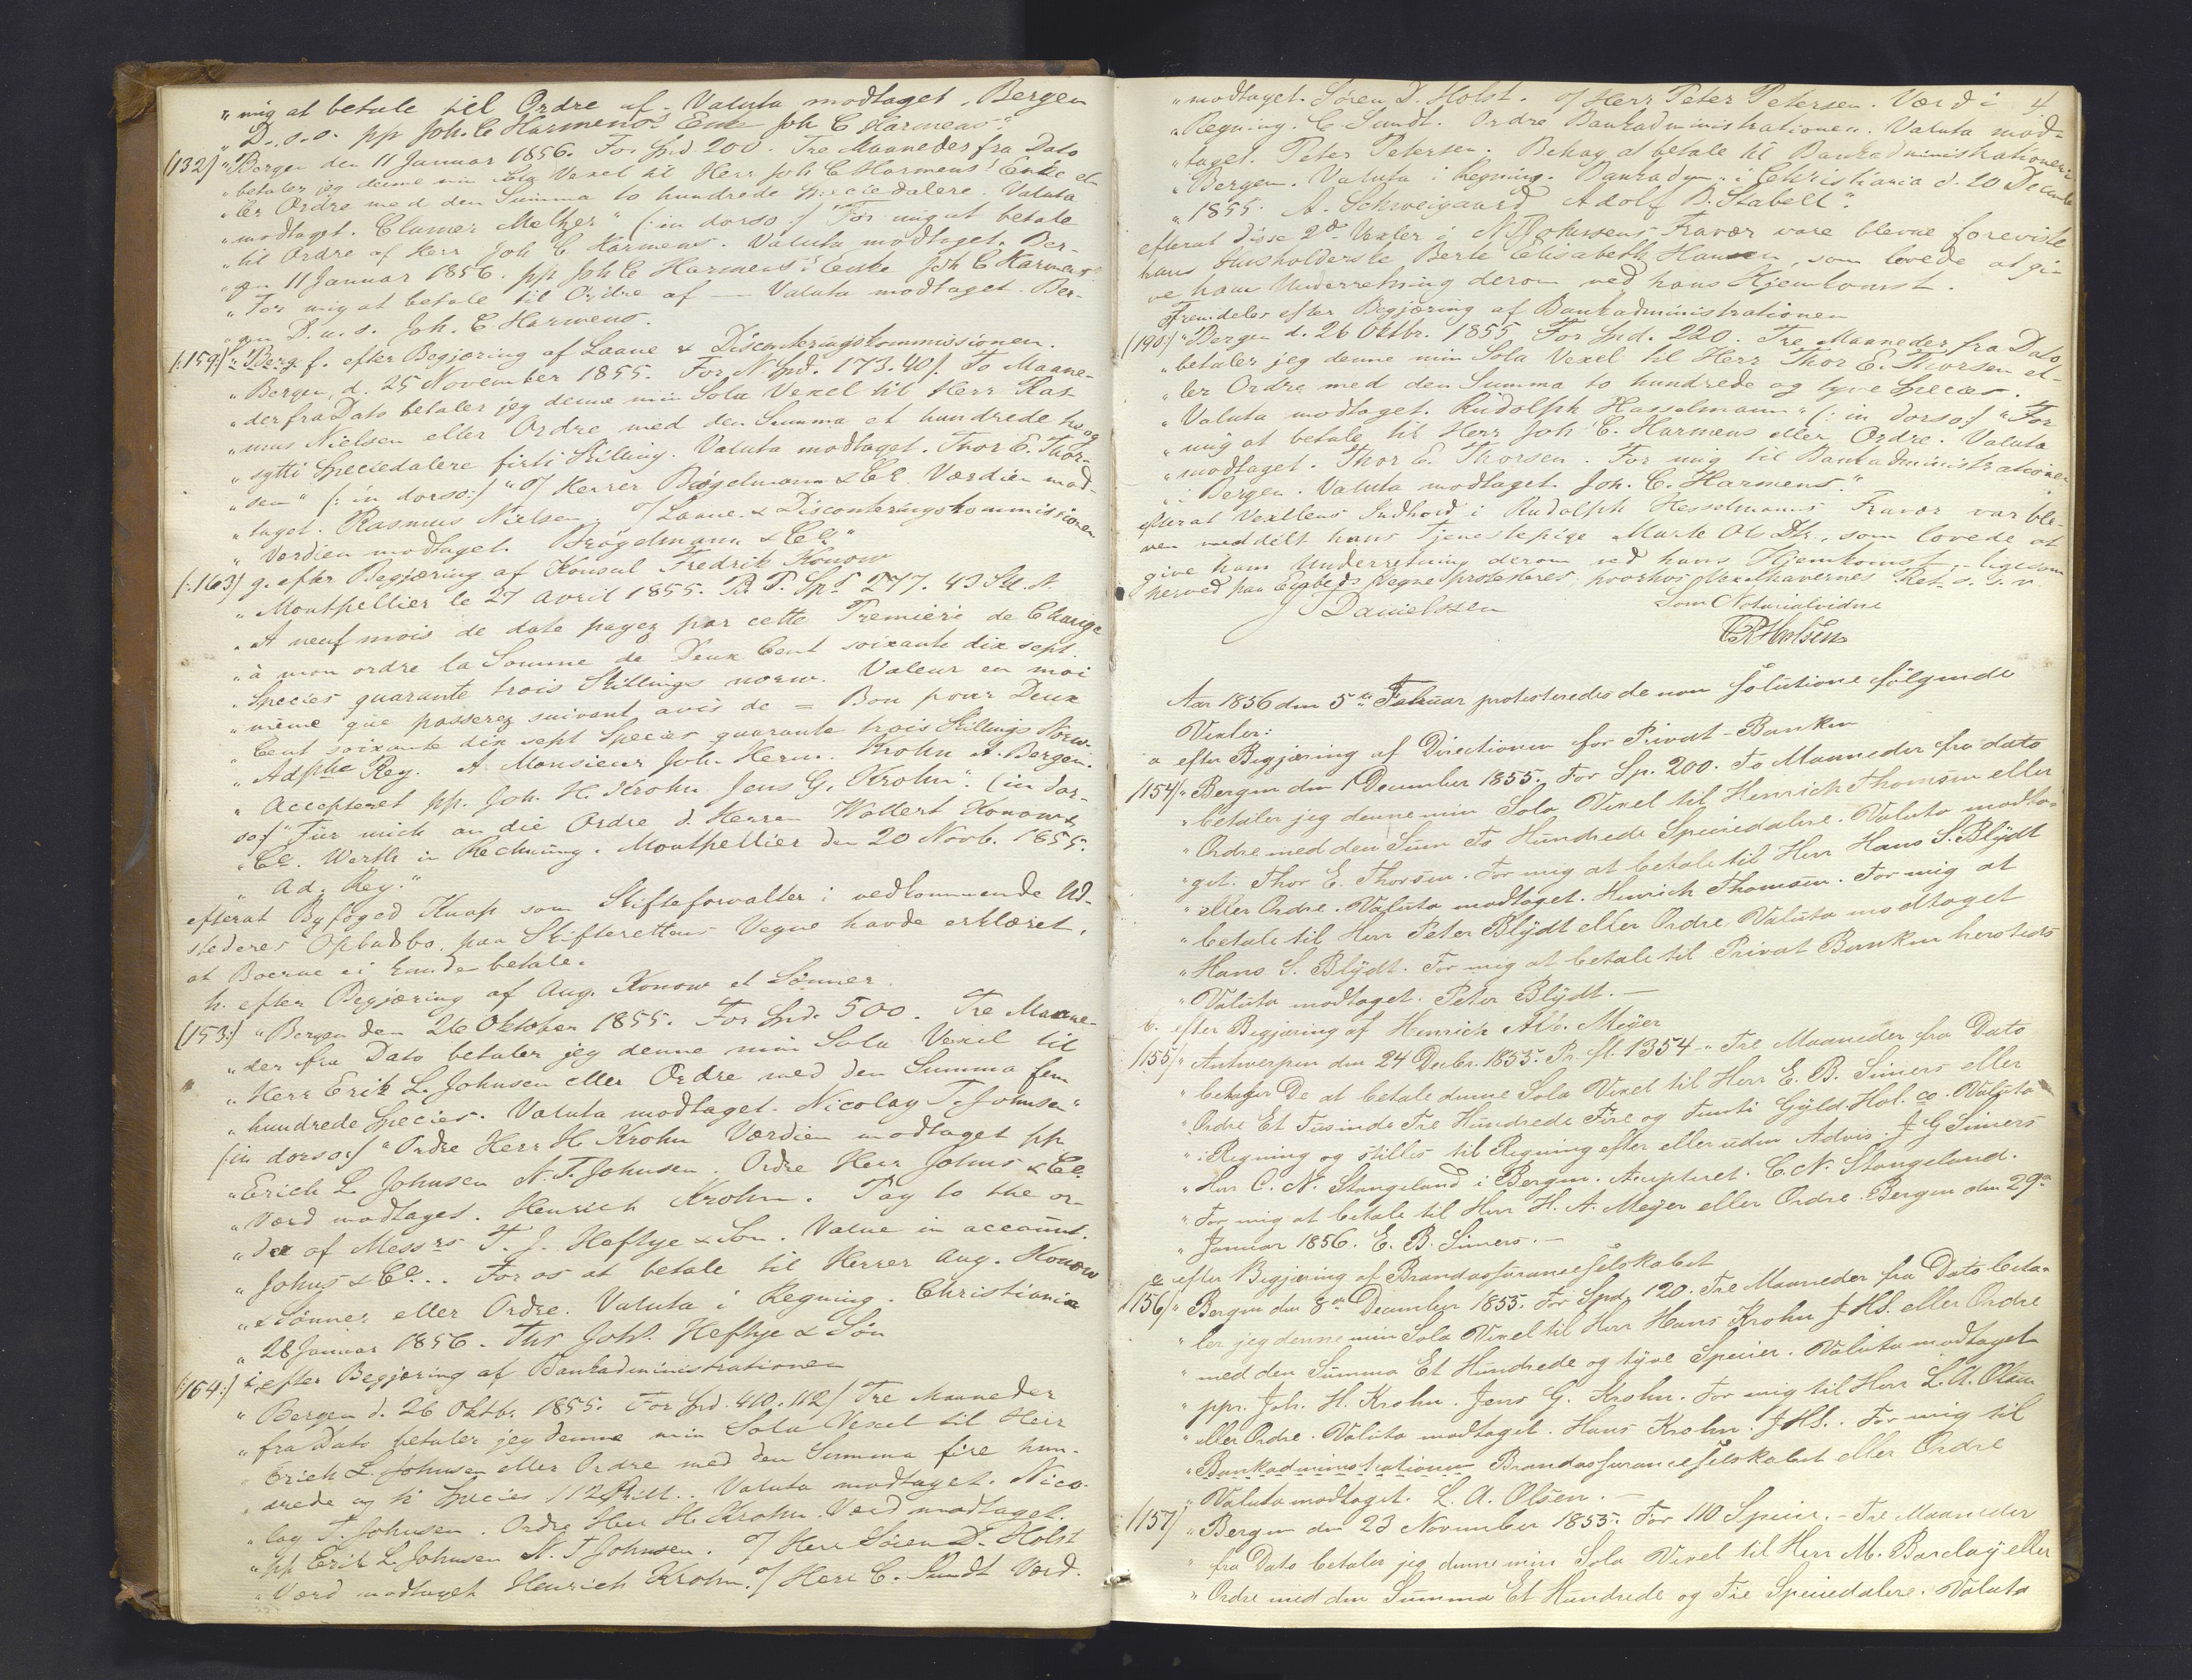 „mig at betale til Ordre af. Valuta modtaget. Bergen
„D. o. s. pp Joh. C Harmens' Enke Joh C Harmens."
(132) "Bergen den 11 Januar 1856. For Spd. 200. Tre Maaneder fra Dato
„betaler jeg denne min Sola Vexel til Herr Joh C Harmens' Enke el-
„ler Ordre med den Summa to hundrede Speciedalere. Valuta
„modtaget. Clamer Meltzer" (: in dorso :) "For mig at betale
„til Ordre af Herr Joh C Harmens. Valuta modtaget. Ber-
„gen 11 Januar 1856. pp Joh C Harmens' Enke Joh C Harmens
„For mig at betale til Ordre af — Valuta modtaget. Ber-
„gen D. u. s. Joh. C. Harmens.
(:159:) f. efter Begjæring af Laane & Disconteringskommissionen.
„Bergen, d. 25 November 1855. For N. Spd. 173.40 ſ. To Maane-
„der fra Dato betaler jeg denne min Sola Vexel til Herr Ras-
„mus Nielsen eller Ordre med den Summa et hundrede tre og
„sytti Speciedalere firti Skilling. Valuta modtaget. Thor E. Thor-
„sen" (: in dorso :) "O/ Herrer Brögelmann & CE. Værdien mod-
„taget. Rasmus Nielsen. O/ Laane- & Disconteringskommissionen
„Værdien modtaget. Brögelmann & CE"
(:163) g. efter Begjæring af Konsul Fredrik Konow
„Montpellier le 27 Avril 1855. B. P. Spd 277. 43 Sk. N
„A neuf mois de date payez par cette Premiére de Change
„à mon ordre la Somme de Deux Cent soixante dix sept
„Species quarante trois Skillings norw. Valeur en moi
„même que passerez suivant avis de = Bon pour Deux
„Cent soixante dix sept Species quarante trois Skillings Norw.
„Adphe Rey. A Monsieur Joh. Herm. Krohn A. Bergen.
„Accepteret pp. Joh. H. Krohn Jens G. Krohn". (in dor-
so:) "Für mich an die Ordre d. Herren Wollert Konow &
„Co. Werth in Rechnung. Montpellier den 20 Novb. 1855.
„Ad. Rey."
efterat Byfoged Knap som Skifteforvalter i vedkommende Ud-
stederes Opbudsbo, paa Skifterettens Vegne havde erklæret,
at Boerne ei kunde betale.
h. efter Begjæring af Aug. Konow et Sönner
(153:) "Bergen den 26 Oktober 1855. For Spd. 500. Tre Maane-
„der fra Dato betaler jeg denne min Sola Vexel til
„Herr Erik L. Johnsen eller Ordre med den Summa fem
„hundrede Species. Valuta modtaget. Nicolay T. Johnsen"
(in dorso:) "Ordre Herr H. Krohn Værdien modtaget pp
„Erich L. Johnsen N. T. Johnsen. Ordre Herr Johns & Co.
„Værd modtaget. Henrich Krohn. Pay to the or-
„der of Messrs T. J. Heftye & Son. Value in account.
„Johns & Co.. For os at betale til Herrer Aug. Konow
„& Sönner eller Ordre. Valuta i Regning. Christiania
„28 Januar 1856. Ths Johs. Heftye & Sön
(:164:) i. efter Begjæring af Bankadministrationen
„Bergen d. 26 Oktb. 1855. For Spd. 410. 112 ſ Tre Maaneder
„fra Dato betaler jeg denne min Sola Vexel til Herr
„Erich L. Johnsen eller Ordre med den Summa fire hun-
„drede og ti Species 112 Skill.. Valuta modtaget. Nico-
„lay T. Johnsen. Ordre Herr H. Krohn. Værd modtaget.
„pp Erik L. Johnsen N. T Johnsen. O/ Herr Sören D. Holst
„Værd modtaget Henrich Krohn. O/ Herr C. Sundt Værd.
„modtaget. Sören D. Holst. O/ Herr Peter Petersen. Værd i 4
„Regning. C. Sundt. Ordre Bankadministrationen. Valuta mod-
„taget. Peter Petersen. Behag at betale til Bankadministrationen i
„Bergen. Valuta i Regning. Bankadm. i Christiania d. 20 Decemb
„1855. A. Schweigaard Adolf B. Stabell".
efterat disse 2de Vexler i N. T Johnsens Fravær vare blevne foreviste
hans Husholderske Berte Elisabeth Hansen, som lovede at gi-
ve ham Underretning derom ved hans Hjemkomst.
Fremdeles efter Begjæring af Bankadministrationen
(190:) "Bergen d. 26 Oktbr. 1855 For Spd. 220. Tre Maaneder fra Dato
„betaler jeg denne min Sola Vexel til Herr Thor E. Thorsen el-
„ler Ordre med den Summa to hundrede og tyve Species.
„Valuta modtaget. Rudolph Hasselmann" (: in dorso:) "For
„mig at betale til Herr Joh C. Harmens eller Ordre. Valuta
„modtaget. Thor E. Thorsen. For mig til Bankadministrationen
„i Bergen. Valuta modtaget. Joh. C. Harmens."
efterat Vexellens Indhold i Rudolph Hesselmanns Fravær var ble-
ven meddelt hans Tjenestepige Marte Ols Dtr., som lovede at
give ham Underretning derom ved hans Hjemkomst, ligesom
herved paa Embeds Vegne protesteres, hvorhos Vexelhavernes Ret s. s. v.
J Danielssen Som Notarialvidne
CR Holsen
Aar 1856 den 5te Februar protesteredes de non solutione fölgende
Vexler:
a efter Begjæring af Directionen for Privat-Banken
(154) „Bergen den 1 December 1855. For Sp. 200. To Maaneder fra dato
„betaler jeg denne min Sola Vexel til Henrich Thomsen eller
„Ordre med den Sum To Hundrede Speciedalere. Valuta modta-
„get. Thor E. Thorsen. For mig at betale til Herr Hans S. Blydt
„eller Ordre. Valuta modtaget. Henrich Thomsen. For mig at
„betale til Herr Peter Blydt eller Ordre. Valuta modtaget
„Hans S. Blydt. For mig at betale til Privat Banken hersteds
„Valuta modtaget. Peter Blydt. —
b. efter Begjæring af Henrich Alb. Meyer
(155) „Antwerpen den 24 Decbr. 1855. Pr. fl. 1354 „ Tre Maaneder fra Dato
„behager De at betale denne Sola Vexel til Herr E. B. Simers eller
„Ordre Et Tusinde Tre Hundrede Fire og Femti Gyld. Hol. co. Valuta
„i Regning og stilles til Regning efter eller uden Advis. J G Simers
„Herr C. N. Stangeland i Bergen. Accepteret. C. N. Stangeland.
„For mig at betale til Herr H. A. Meyer eller Ordre. Bergen den 29de
„Januar 1856. E. B. Simers. —
c efter Begjæring af Brandassuranceselskabet
(156) „Bergen den 8de December 1855. For Spd. 120. Tre Maaneder fra Dato beta-
„ler jeg denne min Sola Vexel til Herr Hans Krohn J. HS. eller Ordre
„med den Summa Et Hundrede og tyve Specier. Valuta modtaget
„ppr. Joh. H. Krohn. Jens G. Krohn. For mig til Herr L. A. Olsen
„eller Ordre. Valuta modtaget. Hans Krohn. J. HS.. For mig til
„Bankadministrationen Brandassuranceselskabet eller Ordre
„Valuta modtaget. L. A. Olsen. —
(157) „Bergen den 23 November 1855. For 110 Specier. – Tre Maaneder
„fra Dato betaler jeg denne min Sola Vexel til Herr M. Barclay eller
„Ordre med den Summa Et Hundrede og Tie Speciedalere. Valuta